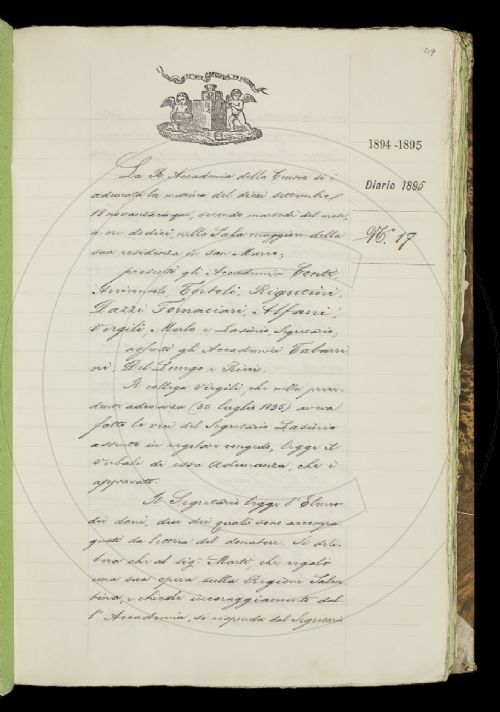 219
1894-1895
Diario 1895
N.° 17
La R. Accademia della Crusca si è
adunata la mattina del dieci settembre
18 novantacinque, secondo martedì del mese,
a ore dodici, nella Sala maggiore della
sua residenza in San Marco;
presenti gli Accademici Conti,
Arciconsolo, Tortoli, Rigutini,
Dazzi, Fornaciari, Alfani,
Virgili, Morlo e Lasinio, Segretario;
assenti gli Accademici Tabarri
ni Del Lungo e Ricci.
Il collega Virgili, che nella prece-
dente adunanza (30 luglio 1895) aveva
fatto le veci del Segretario Lasinio
assente in regolare congedo, legge il
Verbale di essa Adunanza, che è
approvato.
Il Segretario legge l'Elenco
dei doni, due dei quali sono accompa
gnati da lettera del donatore. Si deli-
bera che al sig. Marti, che regalò
una sua opera sulla Regione Salen
tina, e chiede incoraggiamento dal-
l'Accademia, si risponda dal Segretario